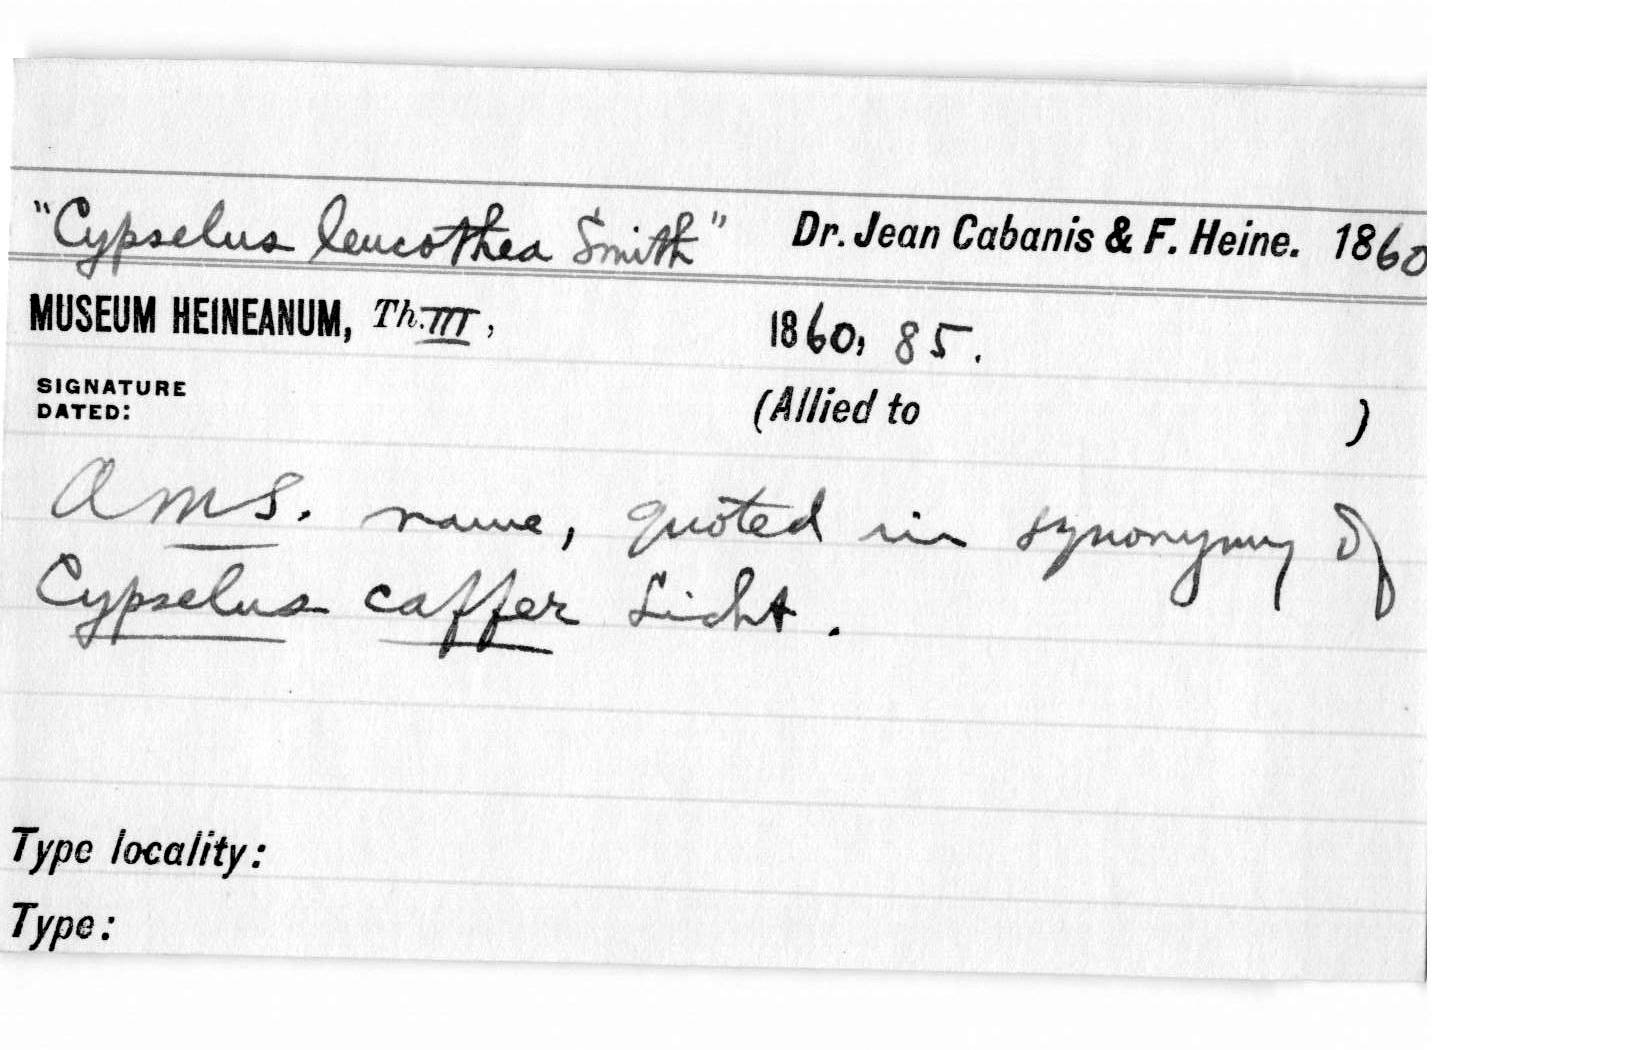 "Cypselus leucothea Smith" Dr. Jean Cabanis & F. Heine. 1860
MUSEUM HEINEANUM, Th. III, 1860, 85.
SIGNATURE
DATED: (Allied to )
A MS. name, quoted in synonymy of
Cypselus caffer Licht.
Type locality:
Type: